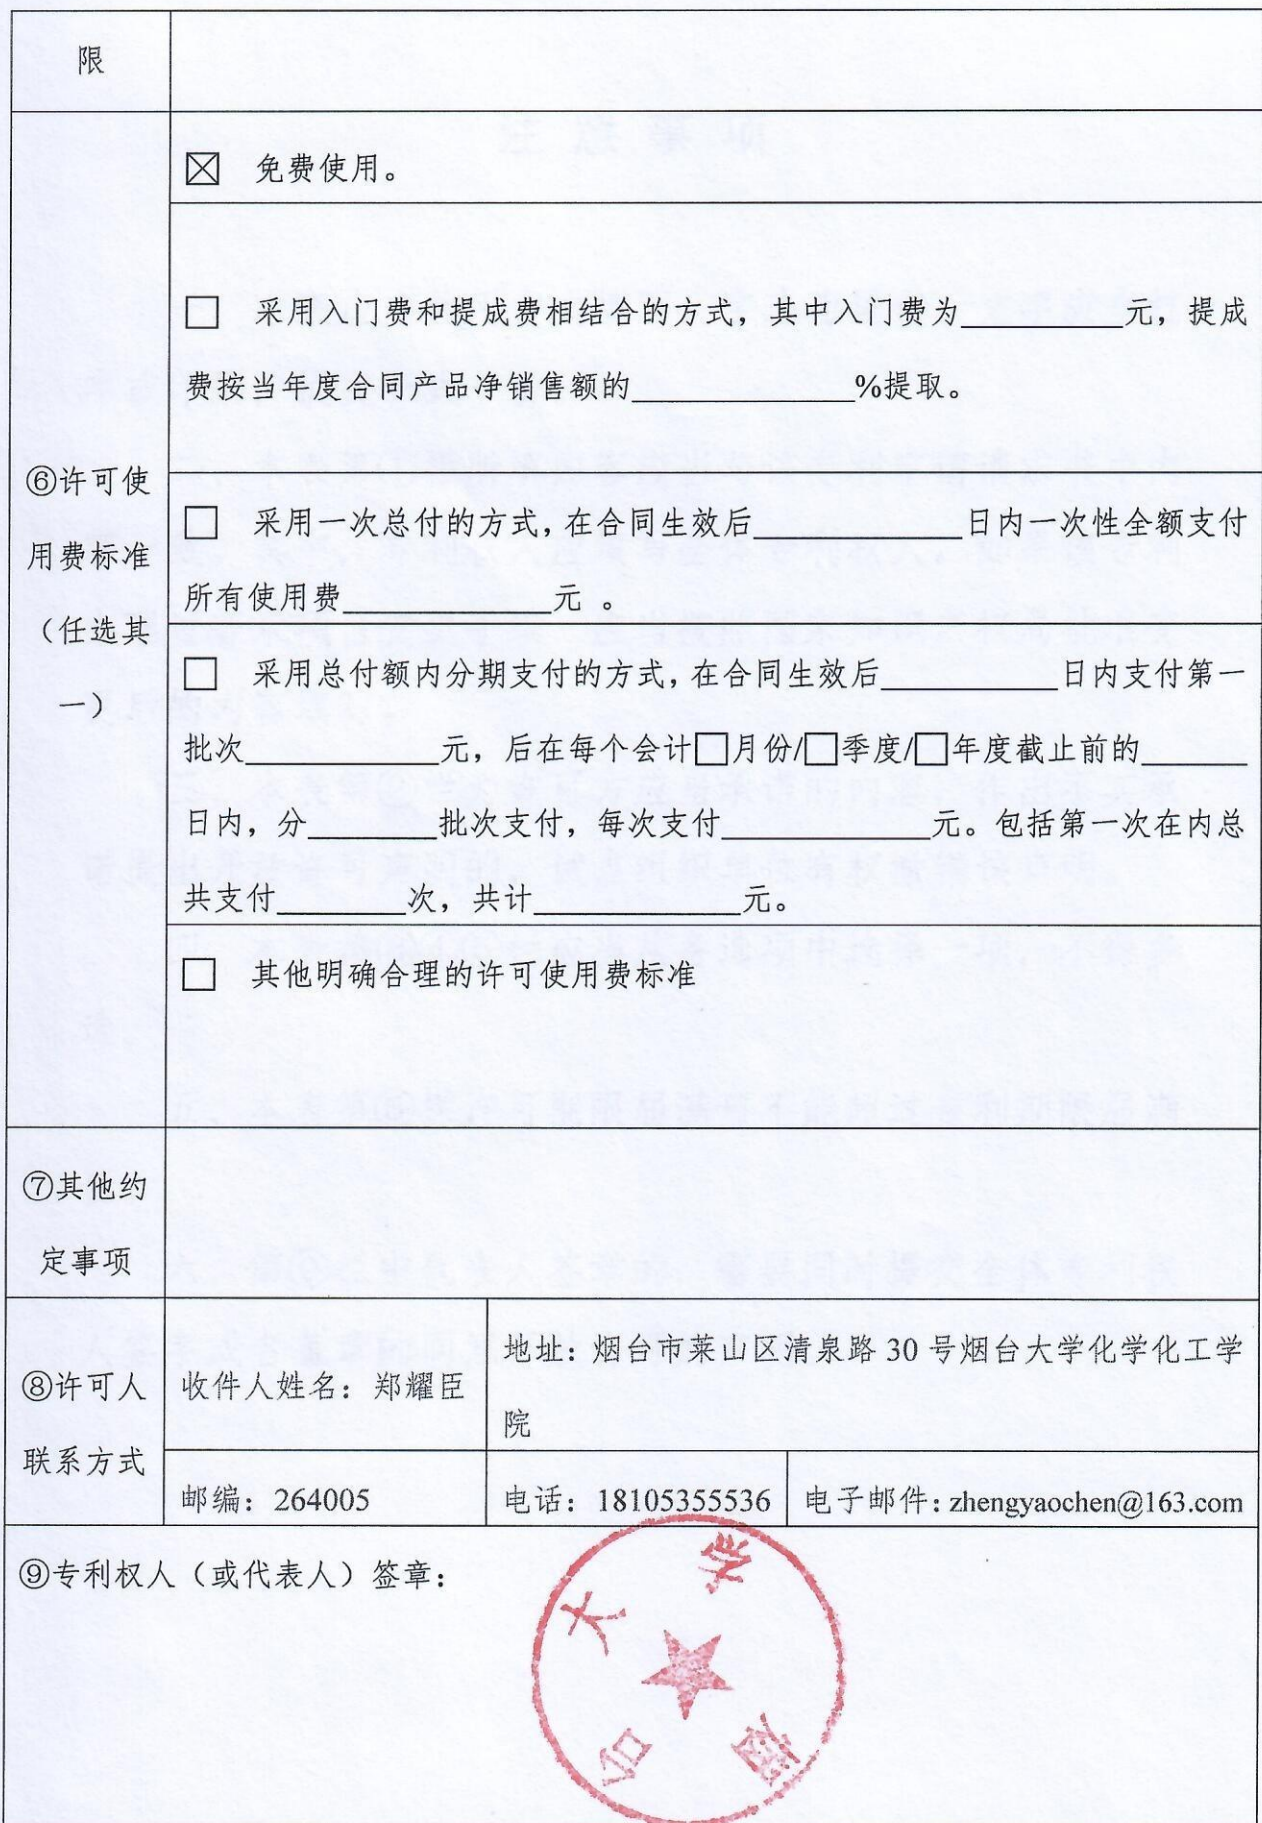 限
☒ 免费使用。
☐ 采用入门费和提成费相结合的方式，其中入门费为__________元，提成
费按当年度合同产品净销售额的______________%提取。
⑥许可使
用费标准
（任选其
一）
☐ 采用一次总付的方式，在合同生效后_____________日内一次性全额支付
所有使用费_____________元 。
☐ 采用总付额内分期支付的方式，在合同生效后___________日内支付第一
批次____________元，后在每个会计☐月份/☐季度/☐年度截止前的______
日内，分________批次支付，每次支付_____________元。包括第一次在内总
共支付________次，共计_____________元。
☐ 其他明确合理的许可使用费标准
⑦其他约
定事项
⑧许可人
联系方式
收件人姓名：郑耀臣
地址：烟台市莱山区清泉路 30 号烟台大学化学化工学
院
邮编：264005
电话：18105355536
电子邮件：zhengyaochen@163.com
⑨专利权人（或代表人）签章：
烟台大学